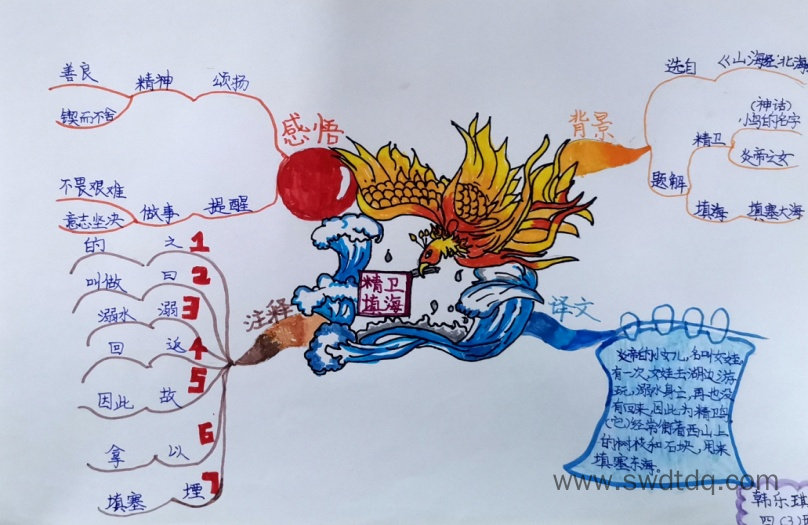 善良
精神
颂扬
锲而不舍
感悟
不畏艰难
做事
提醒
意志坚决
背景
选自
《山海经·北海
题解
精卫
(神话)
小鸟的名字
炎帝之女
填海
填塞大海
精卫
填海
注释
的 之 1
叫做 曰 2
溺水 溺 3
回 返 4
因此 故 5
拿 以 6
填塞 堙 7
译文
炎帝的小女儿,名叫女娃
有一次,女娃去湖边游
玩,溺水身亡,再也没
有回来,因此为精卫鸟
(它)经常衔着西山上
的树枝和石块,用来
填塞东海
www.swdtdq.com
韩乐琪
四(3)